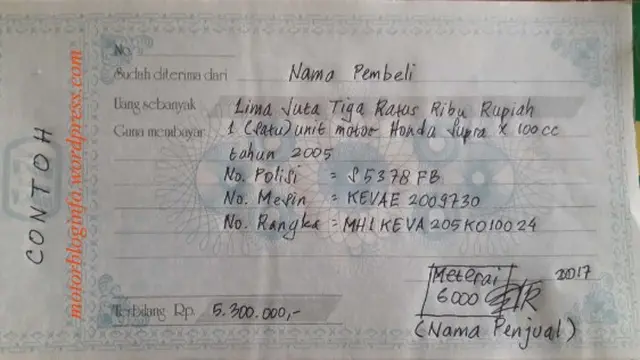 No.
Sudah diterima dari Nama Pembeli
Uang sebanyak Lima Juta Tiga Ratus Ribu Rupiah
Guna membayar 1 (satu) unit motor Honda Supra X 100cc
tahun 2005
No. Polisi = S 5378 FB
No. Mesin = KEVAE 2009730
No. Rangka = MH1KEVA205K010024
Meterai 2017
6000
(Nama Penjual)
Terbilang Rp. 5.300.000,-
CONTOH
motorbloginfo.wordpress.com